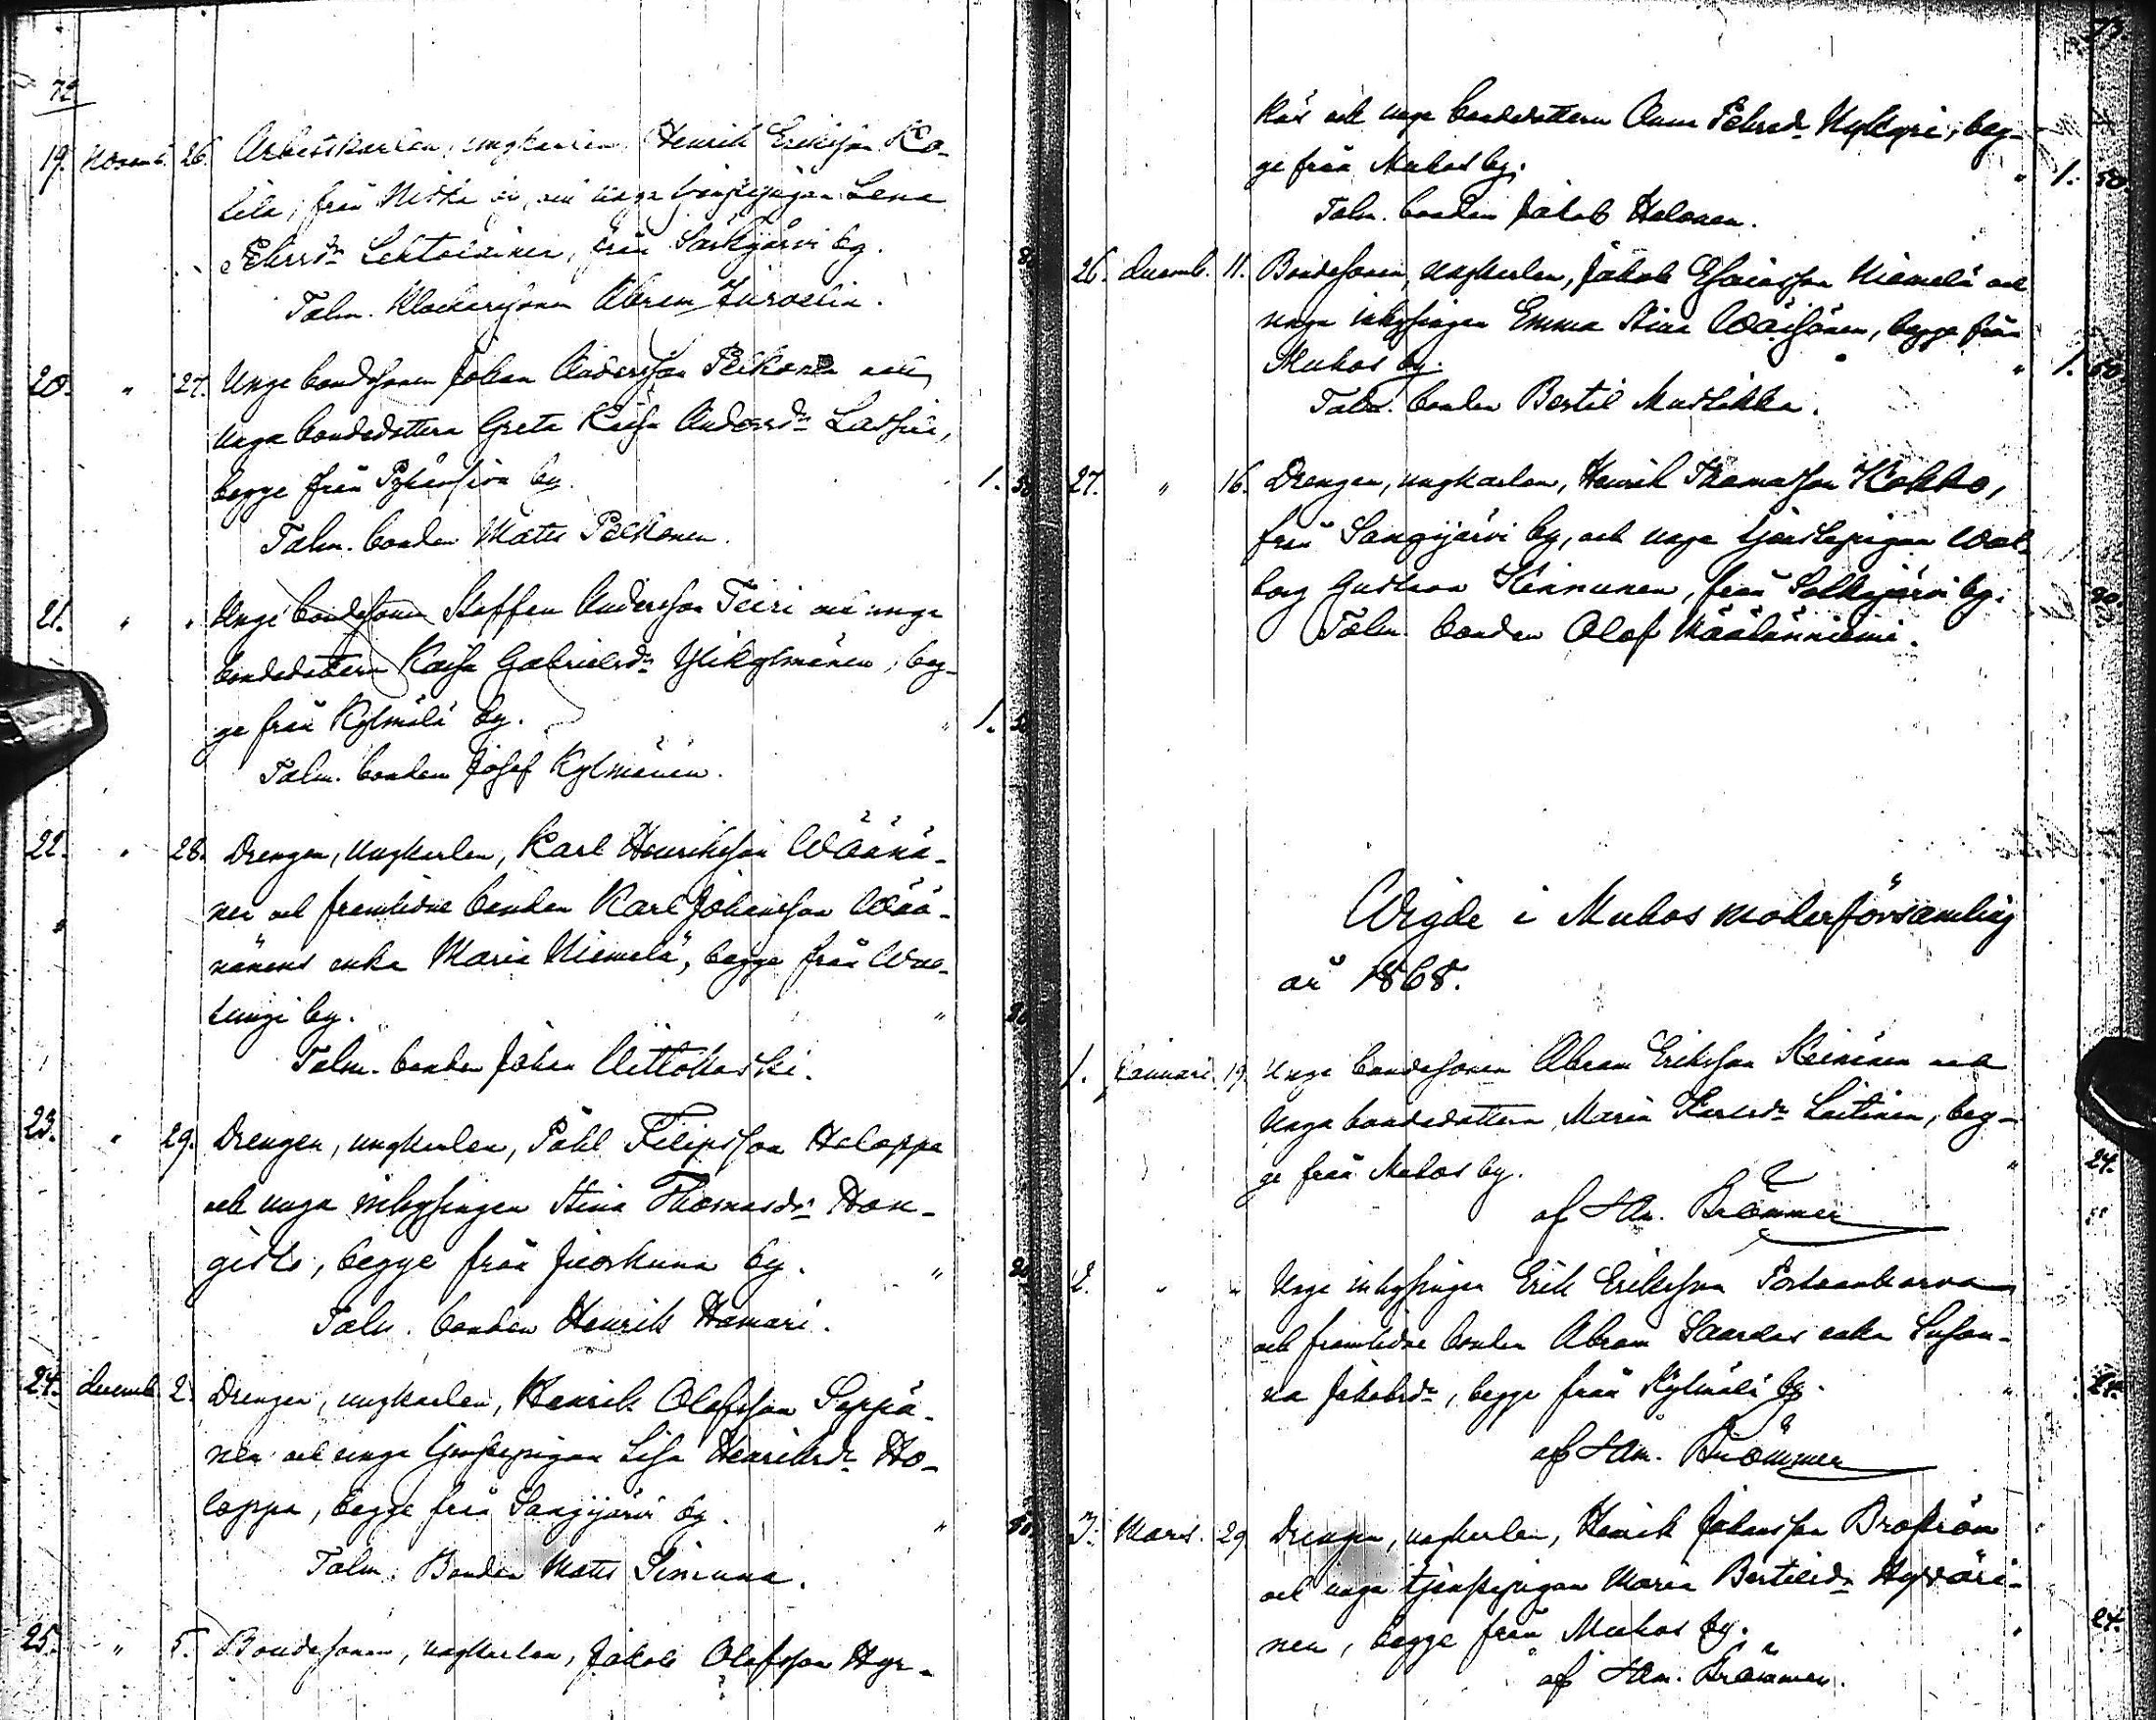 72
19. Novemb. 26. Arbetskarlen, ungkarlen Henrik Eriksson Ko-
lila, från Niska by, och unga tjenstepigan Lena
Pehrsdr Lehtoläinen, från Särkijärvi by.
Talm. Klockaresonen Abram Zuroelin.
20. " 27. Unge bondesonen Johan Andersson Pelkonen och
unga bondedottern Greta Kaisa Andersdr Lassila,
begge från Pyhänsivu by. 1. 50
Talm. bonden Matts Pelkonen.
21. " " Unge bondesonen Staffan Andersson Teiri och unga
bondedottern Kaisa Gabrielsdr Ylikylmänen, beg-
ge från Kylmälä by. " 1. 50
Talm. bonden Josef Kylmänen.
22. " 28. Drengen, ungkarlen, Karl Henriksson Wäänä-
nen och framlidne bonden Karl Johansson Wää-
nänens enka Maria Niemelä, begge från
by. "
Talm. bonden Johan Aittokoski.
23. " 29. Drengen, ungkarlen, Påhl Filipsson Holappa
och unga inhysingen Stina Thomasdr Hon-
gisto, begge från Juorkuna by. "
Talm. bonden Henrik Hamari.
24. Decemb. 2. Drengen, ungkarlen, Henrik Olofsson Seppä-
nen och unga tjenstepigan Lisa Henriksdr Ho-
lappa, begge från Sangijärvi by. "
Talm. Bonden Matts Simuna.
25. " 5. Bondesonen, ungkarlen, Jakob Olofsson Hyr-
73.
käs och unga bondedottern Anna Pehrsdr Nykyri, beg-
ge från Muhos by. " 1. 50.
Talm. bonden Jakob Halonen.
26. Decemb. 11. Bondesonen, ungkarlen, Jakob Esaiasson Niemelä och
unga inhysingen Emma Stina Wäisänen, begge från
Muhos by. " 1. 50
Talm. bonden Bertil Mustikka.
27. " 16. Drengen, ungkarlen, Henrik Thomasson Kokko,
från Sangijärvi by, och unga tjenstepigan Wal-
borg Gustava Kinnunen, från by.
Talm. bonden Olof Määtänniemi.
Wigde i Muhos moderförsamling
år 1868.
1. Januari. 19. Unge bondesonen Abram Eriksson Keinänen och
unga bondedottern Maria Karlsdr Laitinen, beg-
ge från Muhos by. " 24.
af Brömmer
2. " " Unge inhysingen Erik Eriksson
och framlidne bonden Abram enka Susan-
na Jakobsdr, begge från Kylmälä by. " 24.
af Brömmer
3. Mars. 29. Drengen, ungkarlen, Henrik Johansson Broström
och unga tjenstepigan Maria Bertilsdr Hyväri-
nen, begge från Muhos by. " 24.
af Brömmer.